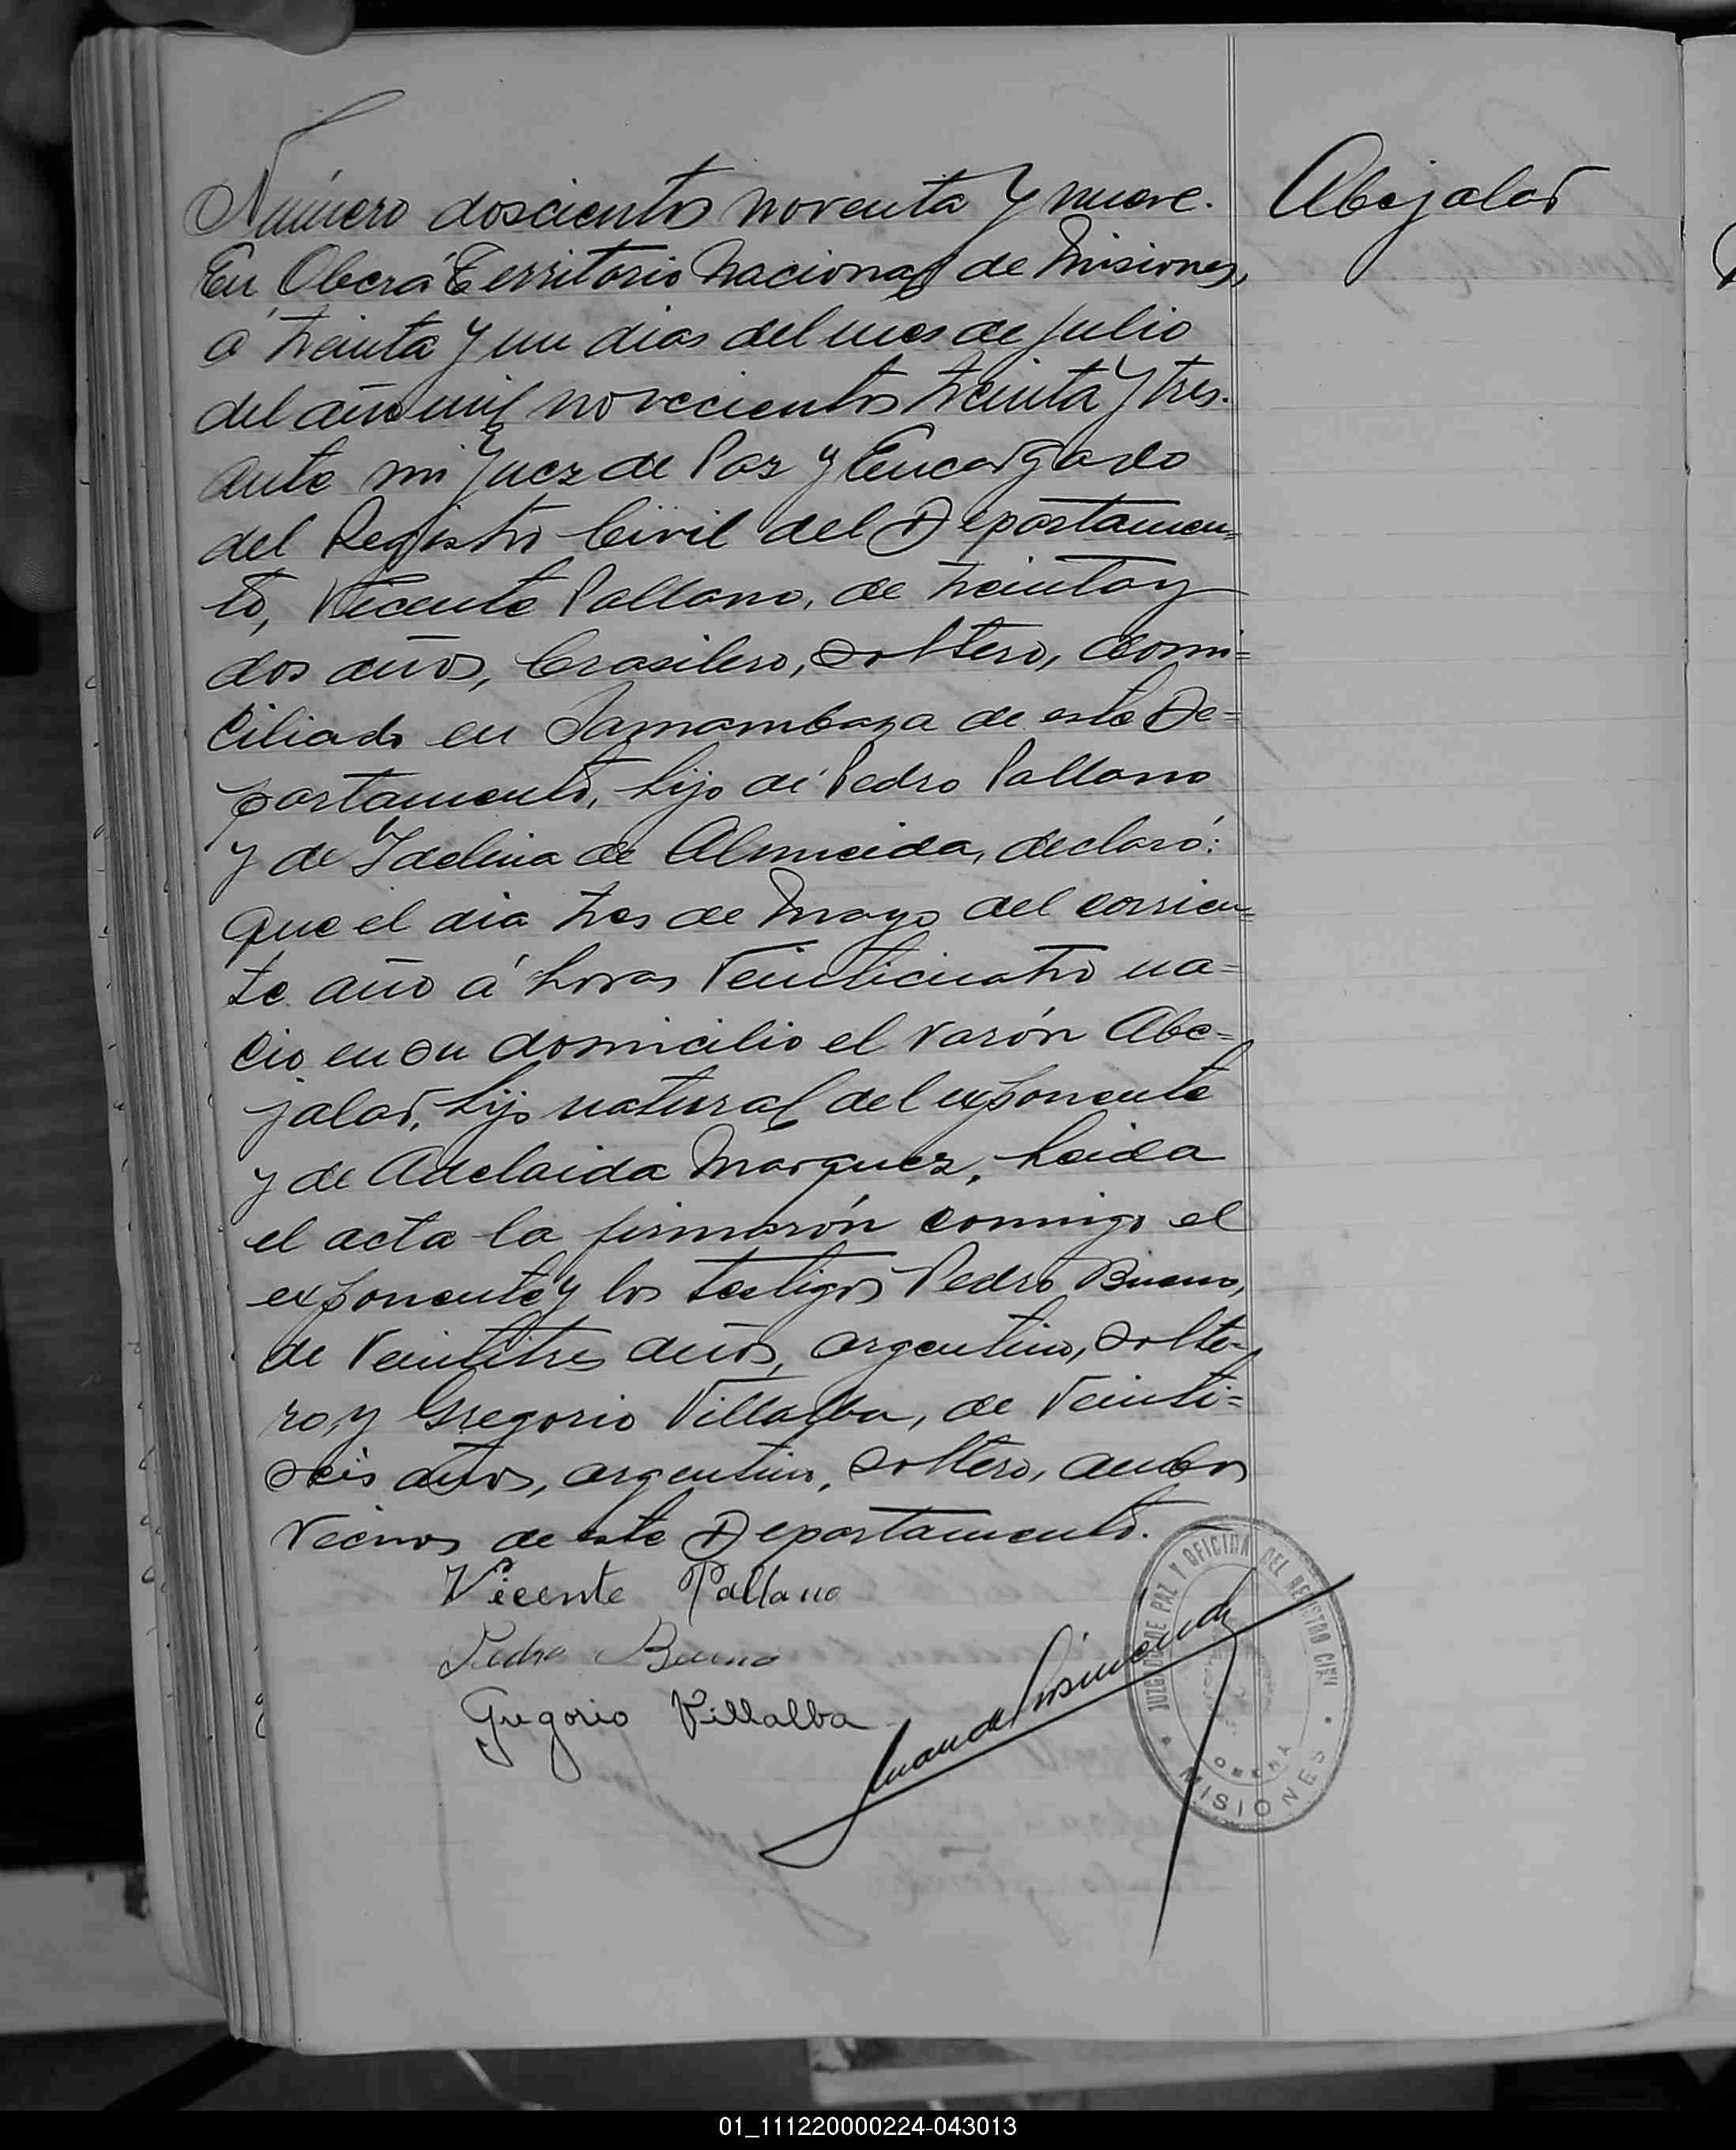 Número doscientos noventa y nueve.
Abejalar
En Oberá Territorio Nacional de Misiones,
á treinta y un dias del mes de julio
del año mil novecientos treinta y tres.
ante mi Juez de Paz y Encargado
del Registro Civil del Departamen=
to, Vicente Pallano, de treinta y
dos años, brasilero, soltero, domi=
ciliado en Samambaya de este De=
partamento, hijo de Pedro Pallano
y de Idelina de Almeida, declaró:
que el dia tres de Mayo del corrien=
te año á horas veinticuatro na=
cio en su domicilio el varón Abe=
jalar, hijo natural del exponente
y de Adelaida Marquez, leida
el acta la firmarón conmigo el
exponente y los testigos Pedro Bueno,
de veintitres años, argentino, solte=
ro, y Gregorio Villalba, de veinti=
seis años, argentino, soltero, ambos
vecinos de este Departamento.
Vicente Pallano
Pedro Bueno
Gregorio Villalba
JUZGADO DE PAZ Y OFICINA DEL REGISTRO CIVIL
OBERÁ
MISIONES
01_111220000224-043013